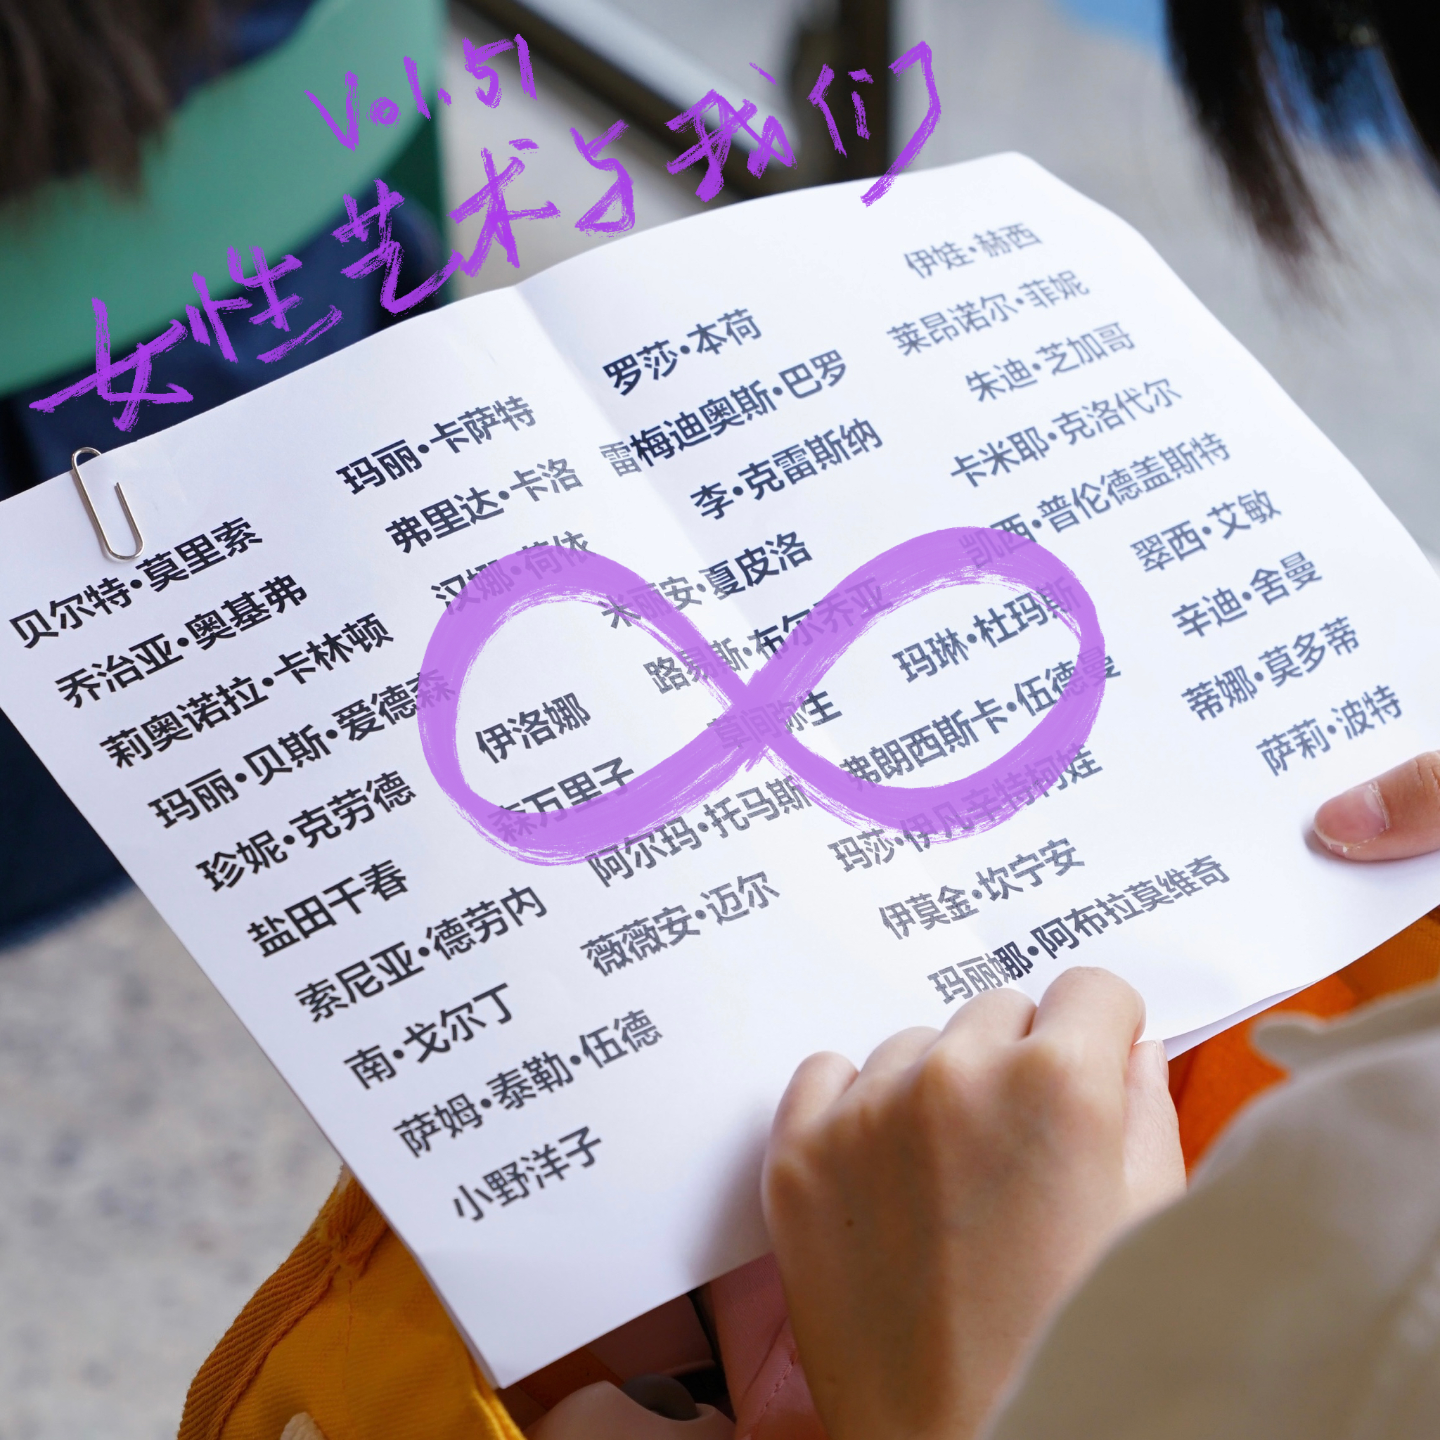 Vol.51
女性艺术与我们
贝尔特·莫里索
乔治亚·奥基弗
莉奥诺拉·卡林顿
玛丽·贝斯·爱德森
珍妮·克劳德
盐田千春
索尼亚·德劳内
南·戈尔丁
萨姆·泰勒·伍德
小野洋子
玛丽·卡萨特
弗里达·卡洛
汉娜·荷依
伊洛娜
森万里子
阿尔玛·托马斯
薇薇安·迈尔
罗莎·本荷
雷梅迪奥斯·巴罗
李·克雷斯纳
米丽安·夏皮洛
路易斯·布尔乔亚
草间弥生
玛琳·杜玛斯
弗朗西斯卡·伍德曼
玛莎·伊凡辛特柯娃
伊莫金·坎宁安
玛丽娜·阿布拉莫维奇
伊娃·赫西
莱昂诺尔·菲妮
朱迪·芝加哥
卡米耶·克洛代尔
凯西·普伦德盖斯特
翠西·艾敏
辛迪·舍曼
蒂娜·莫多蒂
萨莉·波特